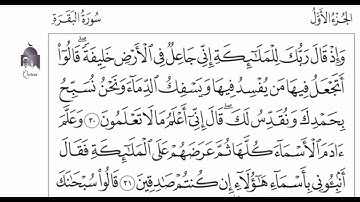 الجُزْءُ الأَوَّلُ سُورَةُ البَقَرَةِ
وَإِذْ قَالَ رَبُّكَ لِلْمَلَـٰٓئِكَةِ إِنِّى جَاعِلٌ فِى ٱلْأَرْضِ خَلِيفَةً ۖ قَالُوٓا۟
أَتَجْعَلُ فِيهَا مَن يُفْسِدُ فِيهَا وَيَسْفِكُ ٱلدِّمَآءَ وَنَحْنُ نُسَبِّحُ
بِحَمْدِكَ وَنُقَدِّسُ لَكَ ۖ قَالَ إِنِّىٓ أَعْلَمُ مَا لَا تَعْلَمُونَ ٣٠ وَعَلَّمَ
ءَادَمَ ٱلْأَسْمَآءَ كُلَّهَا ثُمَّ عَرَضَهُمْ عَلَى ٱلْمَلَـٰٓئِكَةِ فَقَالَ
أَنۢبِـُٔونِى بِأَسْمَآءِ هَـٰٓؤُلَآءِ إِن كُنتُمْ صَـٰدِقِينَ ٣١ قَالُوا۟ سُبْحَـٰنَكَ